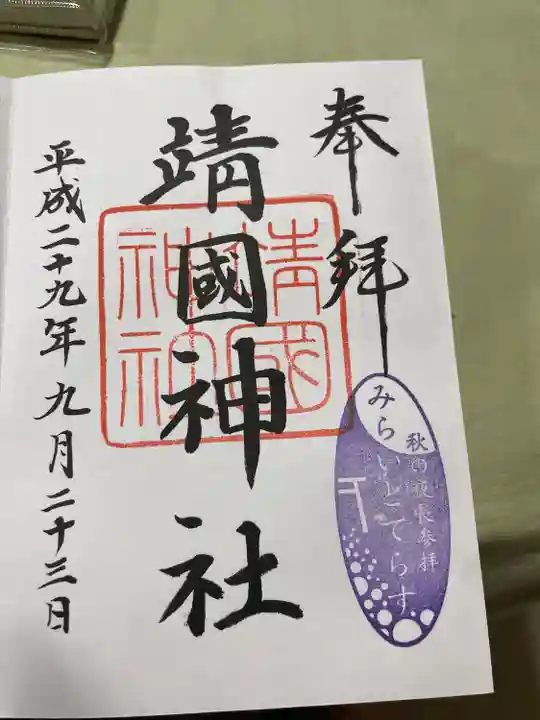 奉拝
靖國神社
靖國
神社
平成二十九年九月二十三日
秋の夜長参拝
みらいとてらす